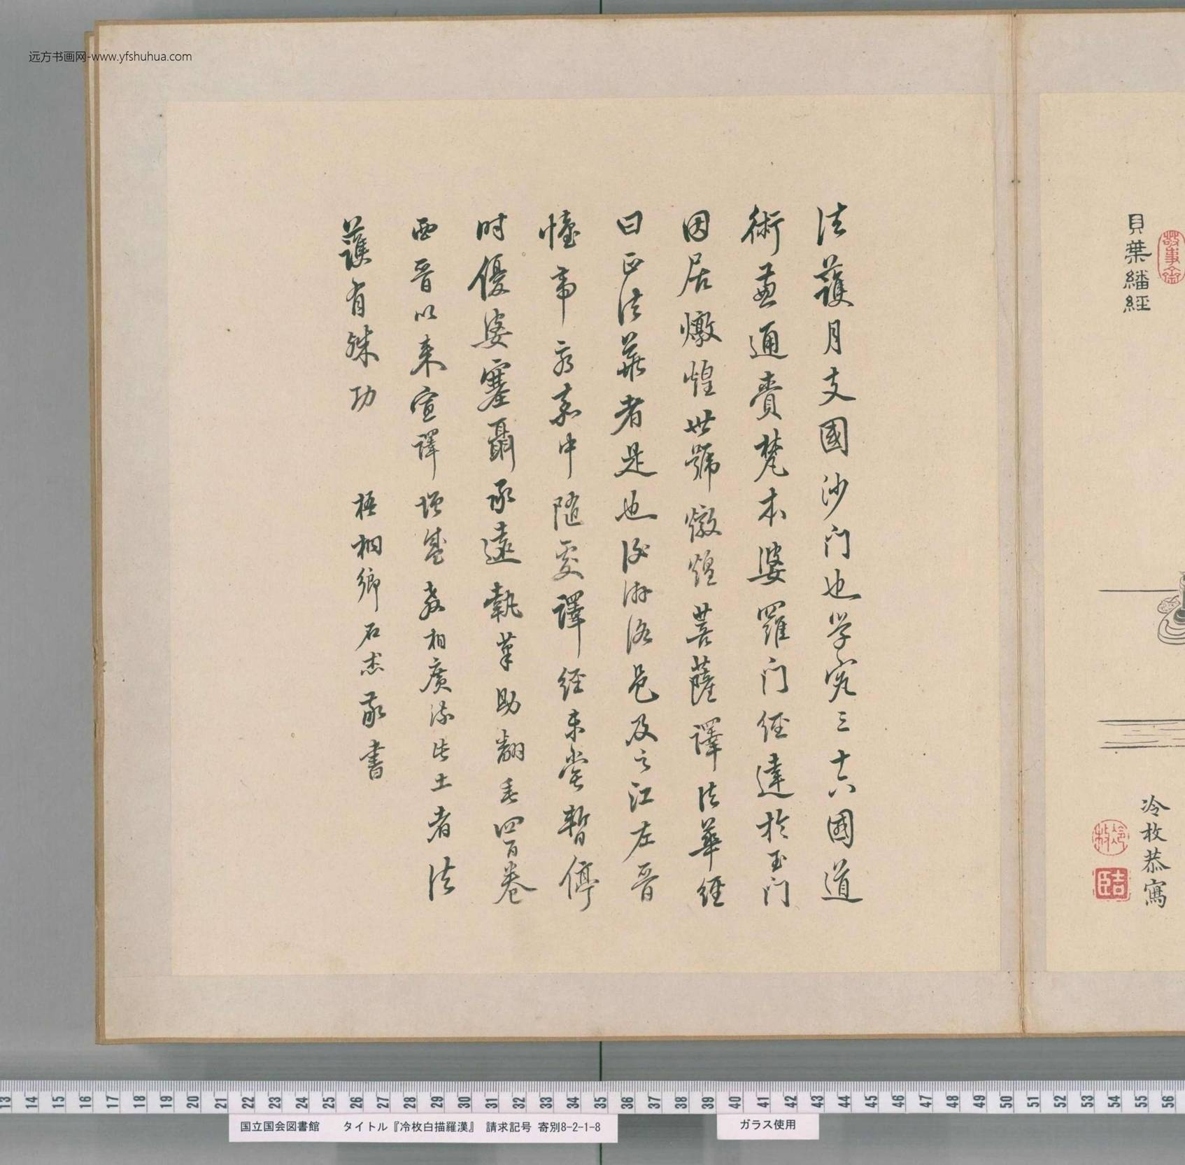 远方书画网-www.yfshuhua.com
貝葉繙經
冷枚恭寫
法護月支國沙门也学究三十六國道
術兼通賷梵本婆羅门经達於玉门
因居燉煌世號燉煌菩薩譯法華經
曰正法華者是也後游洛邑及之江左晋
懷帝永嘉中随處譯経未嘗暫停
时優婆塞聶承遠執筆助翻垂四百卷
西晋以来宣譯增盛教相廣流此土者法
護有殊功　梧桐鄉石杰敬書
13 14 15 16 17 18 19 20 21 22 23 24 25 26 27 28 29 30 31 32 33 34 35 36 37 38 39 40 41 42 43 44 45 46 47 48 49 50 51 52 53 54 55 56
国立国会図書館　タイトル『冷枚白描羅漢』　請求記号 寄別8-2-1-8
ガラス使用